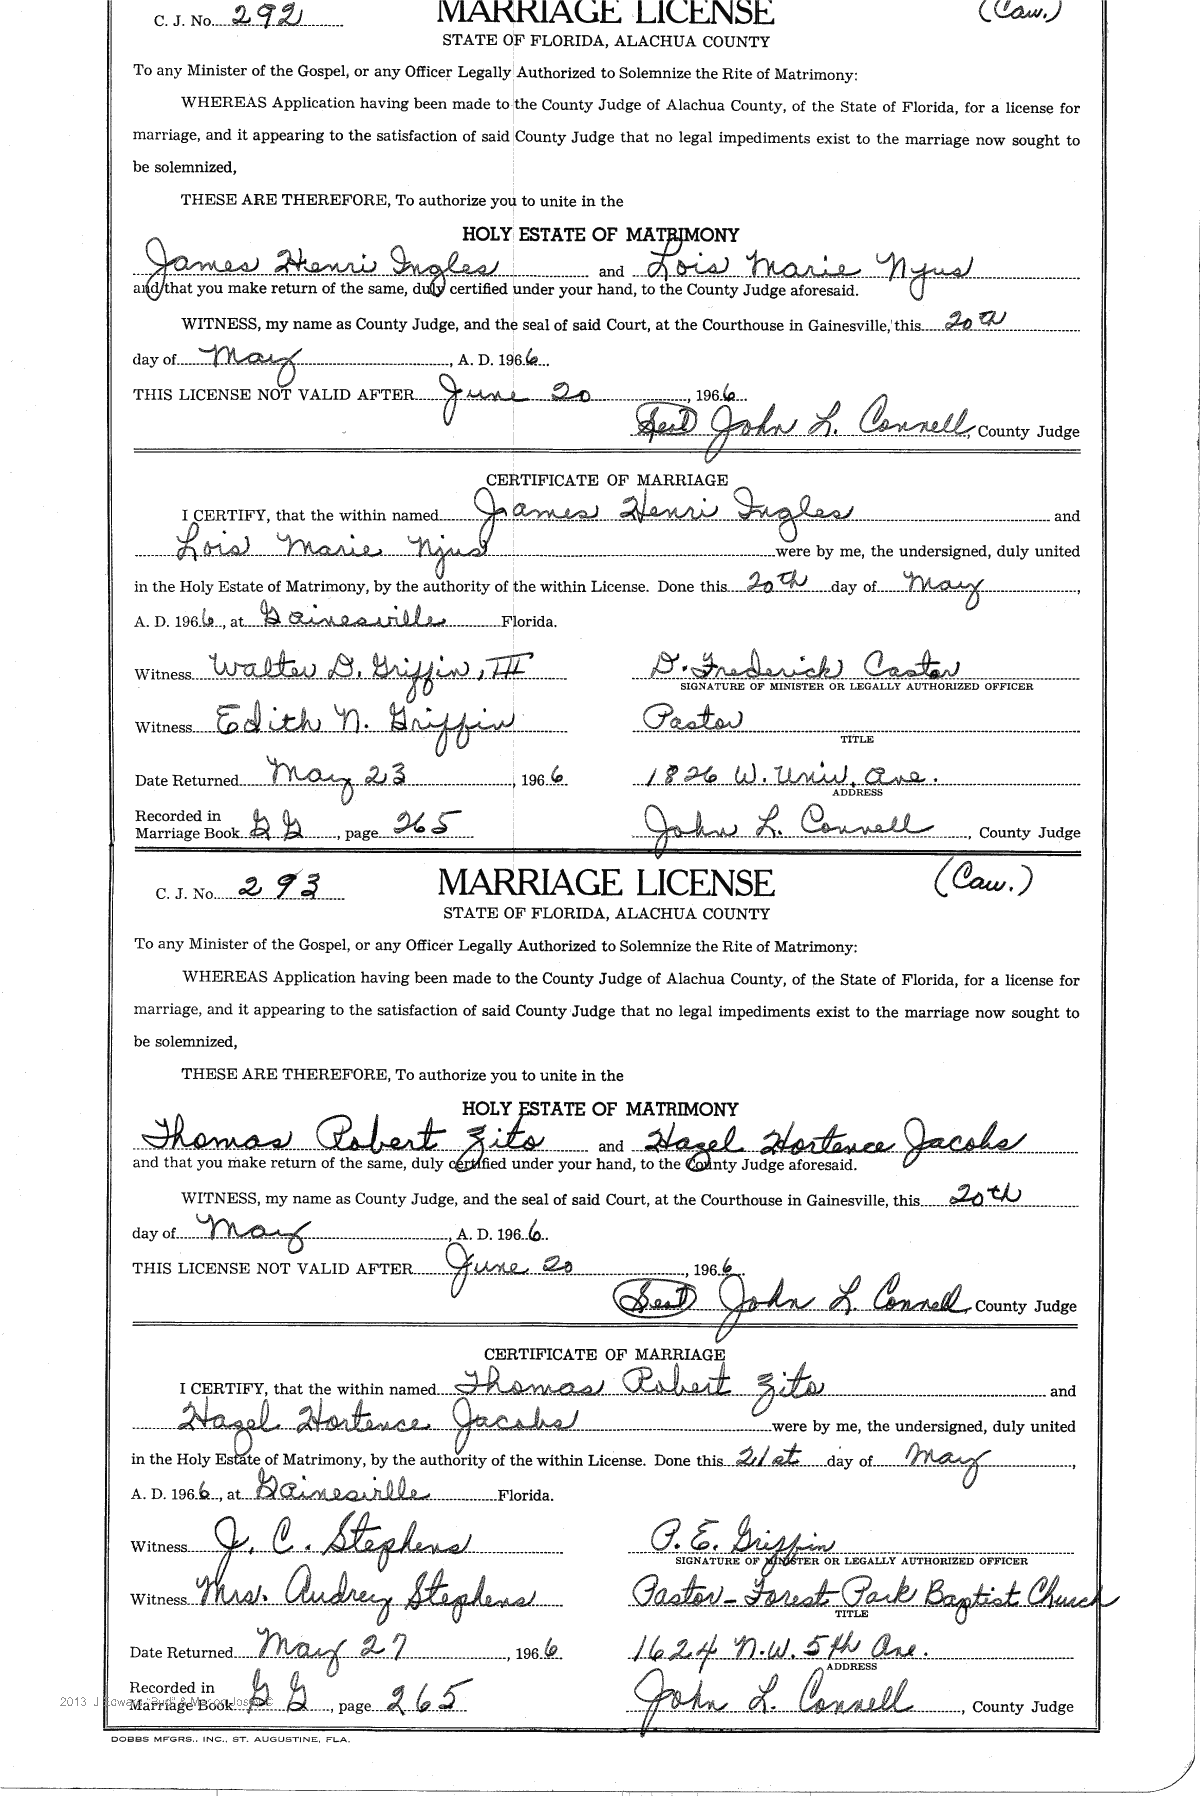 C. J. No. 292 MARRIAGE LICENSE (Caw.)
STATE OF FLORIDA, ALACHUA COUNTY
To any Minister of the Gospel, or any Officer Legally Authorized to Solemnize the Rite of Matrimony:
WHEREAS Application having been made to the County Judge of Alachua County, of the State of Florida, for a license for
marriage, and it appearing to the satisfaction of said County Judge that no legal impediments exist to the marriage now sought to
be solemnized,
THESE ARE THEREFORE, To authorize you to unite in the
HOLY ESTATE OF MATRIMONY
James Henri Ingles and Lois Marie Njus
and that you make return of the same, duly certified under your hand, to the County Judge aforesaid.
WITNESS, my name as County Judge, and the seal of said Court, at the Courthouse in Gainesville, this 20th
day of May, A. D. 1966.
THIS LICENSE NOT VALID AFTER June 20, 1966
(Seal) John L. Connell, County Judge
CERTIFICATE OF MARRIAGE
I CERTIFY, that the within named James Henri Ingles and
Lois Marie Njus were by me, the undersigned, duly united
in the Holy Estate of Matrimony, by the authority of the within License. Done this 20th day of May,
A. D. 1966, at Gainesville Florida.
Witness Walter D. Griffin, III D. Frederick Castor
SIGNATURE OF MINISTER OR LEGALLY AUTHORIZED OFFICER
Witness Edith N. Griffin Pastor
TITLE
Date Returned May 23, 1966 1826 W. Univ. Ave.
ADDRESS
Recorded in
Marriage Book GG, page 265 John L. Connell, County Judge
C. J. No. 293 MARRIAGE LICENSE (Caw.)
STATE OF FLORIDA, ALACHUA COUNTY
To any Minister of the Gospel, or any Officer Legally Authorized to Solemnize the Rite of Matrimony:
WHEREAS Application having been made to the County Judge of Alachua County, of the State of Florida, for a license for
marriage, and it appearing to the satisfaction of said County Judge that no legal impediments exist to the marriage now sought to
be solemnized,
THESE ARE THEREFORE, To authorize you to unite in the
HOLY ESTATE OF MATRIMONY
Thomas Robert Zito and Hazel Hortence Jacobs
and that you make return of the same, duly certified under your hand, to the County Judge aforesaid.
WITNESS, my name as County Judge, and the seal of said Court, at the Courthouse in Gainesville, this 20th
day of May, A. D. 1966.
THIS LICENSE NOT VALID AFTER June 20, 1966
(Seal) John L. Connell, County Judge
CERTIFICATE OF MARRIAGE
I CERTIFY, that the within named Thomas Robert Zito and
Hazel Hortence Jacobs were by me, the undersigned, duly united
in the Holy Estate of Matrimony, by the authority of the within License. Done this 21st day of May,
A. D. 1966, at Gainesville Florida.
Witness J. C. Stephens P. E. Griffin
SIGNATURE OF MINISTER OR LEGALLY AUTHORIZED OFFICER
Witness Mrs. Audrey Stephens Pastor - Forest Park Baptist Church
TITLE
Date Returned May 27, 1966 1624 N.W. 5th Ave.
ADDRESS
Recorded in
Marriage Book GG, page 265 John L. Connell, County Judge
2013
DOBBS MFGRS., INC., ST. AUGUSTINE, FLA.